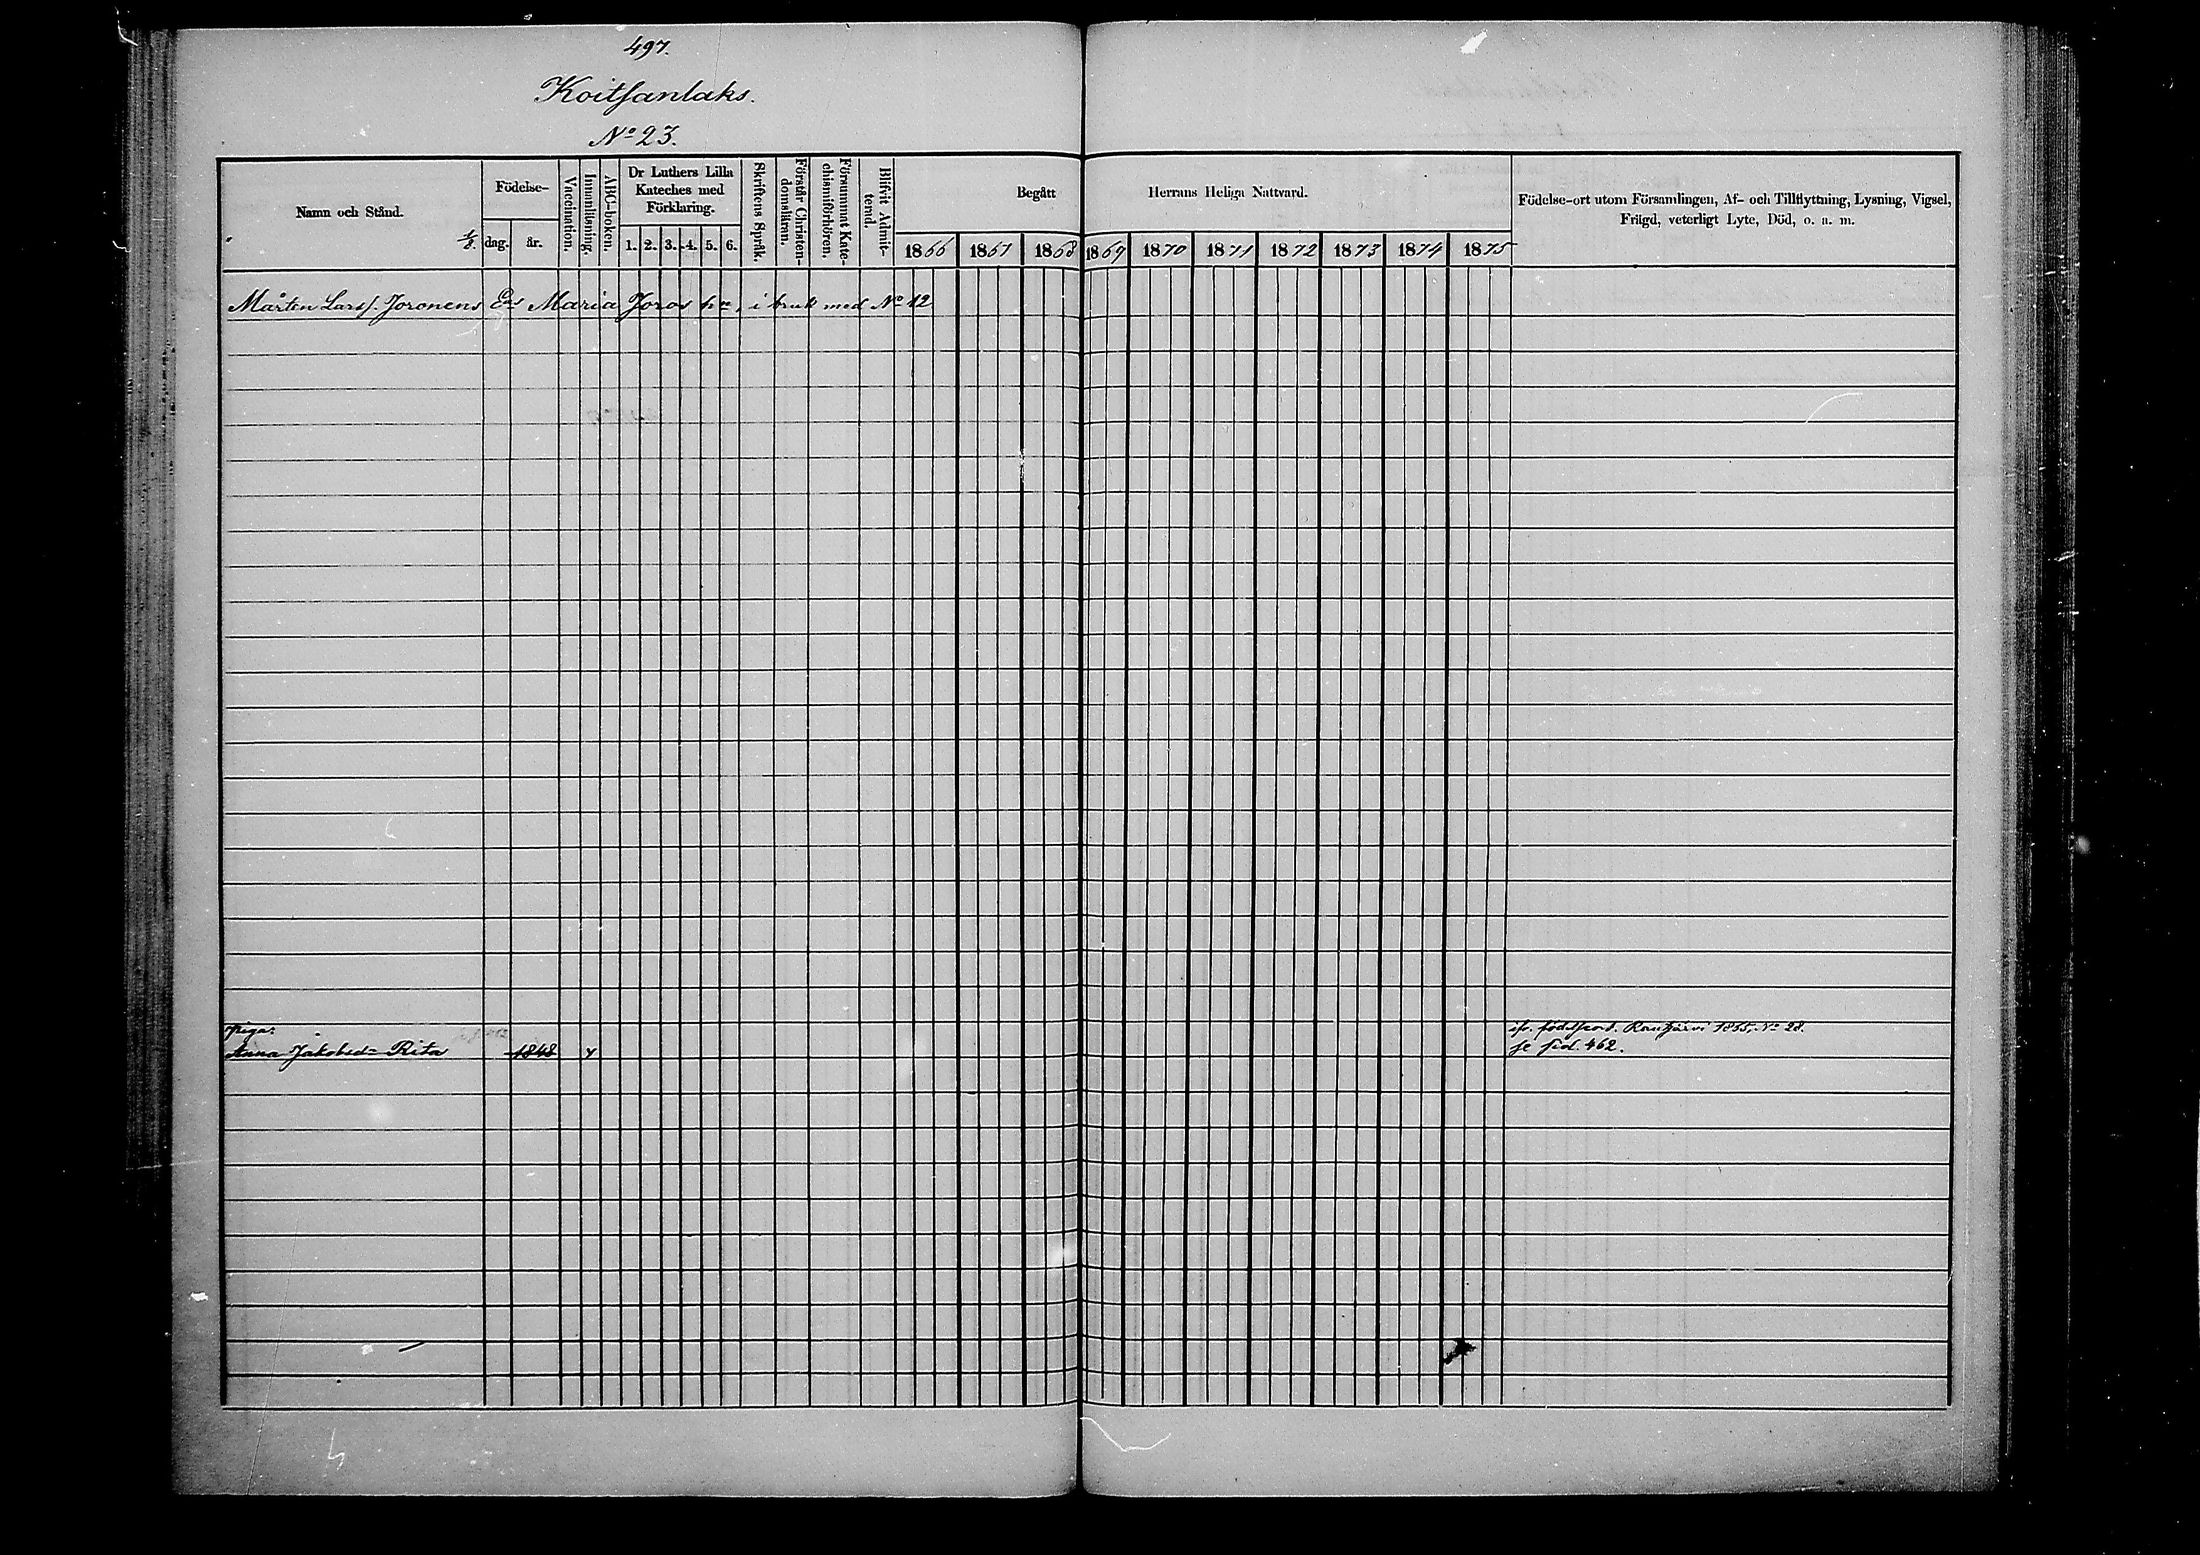 497.
Koitsanlaks.
No 23.
Namn och Stånd.
Födelse-
dag. år.
Vaccination.
Innanläsning.
ABC-boken.
Dr Luthers Lilla
Kateches med
Förklaring.
1. 2. 3. 4. 5. 6.
Skriftens Språk.
Förstår Christen-
domsläran.
Försummat Kate-
chismiförhören.
Blifvit Admit-
terad.
Begått Herrans Heliga Nattvard.
1866 1867 1868 1869 1870 1871 1872 1873 1874 1875
Födelse-ort utom Församlingen, Af- och Tillflyttning, Lysning, Vigsel,
Frägd, veterligt Lyte, Död, o. a. m.
Mårten Larss. Joronens Eas Maria Joros hn, i bruk med No 12
Piga:
Anna Jakobsd:r Rita 1848
födelseort. Rautjärvi 1865. No 28.
se sid. 462.